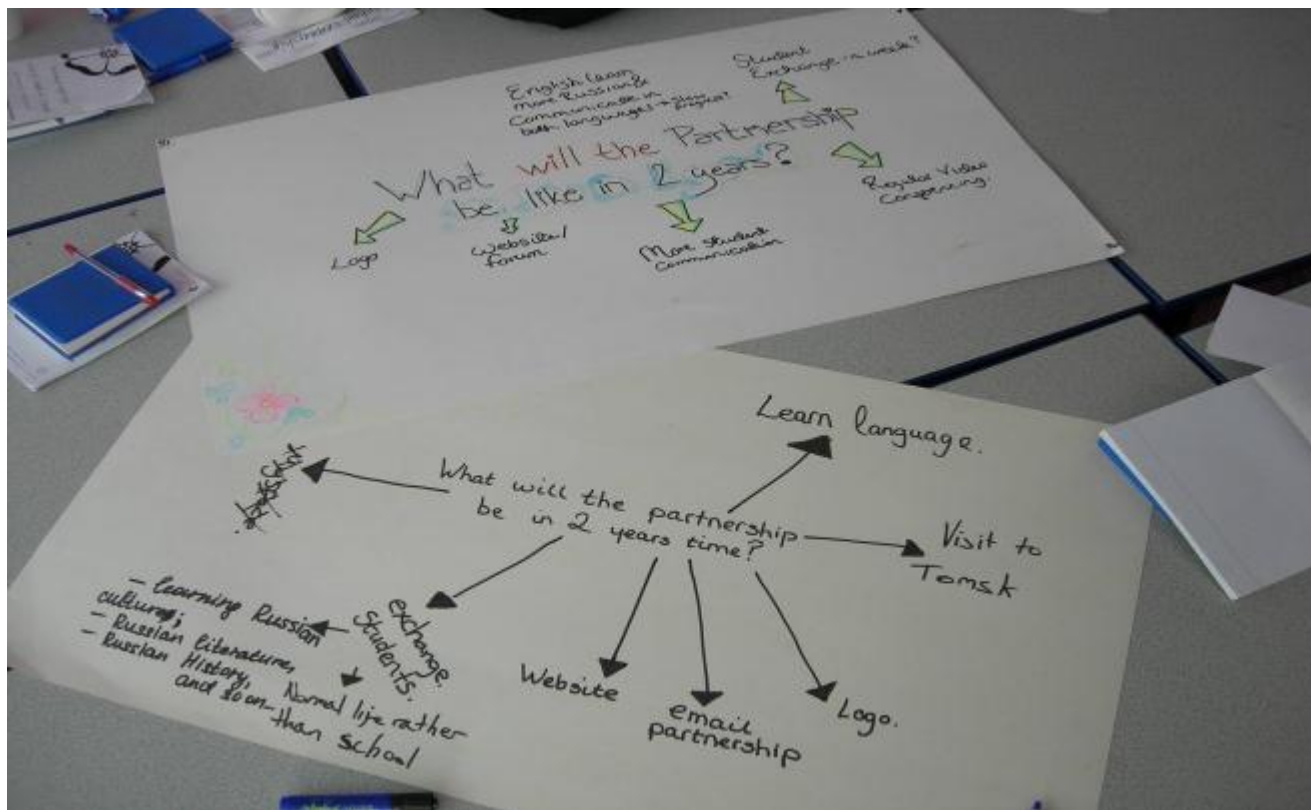 English learn
more Russian &
Communicate in
both languages → slow
progress?
Student
Exchange in week?
What will the Partnership
be like in 2 years?
Logo
Website/
forum
More student
communication
Regular Video
Conferencing.
What will the partnership
be in 2 years time?
Learn language.
Visit to
Tomsk
Logo.
email
partnership
Website
exchange
students.
- learning Russian
culture;
- Russian literature,
- Russian History,
and so on
Normal life rather
than school